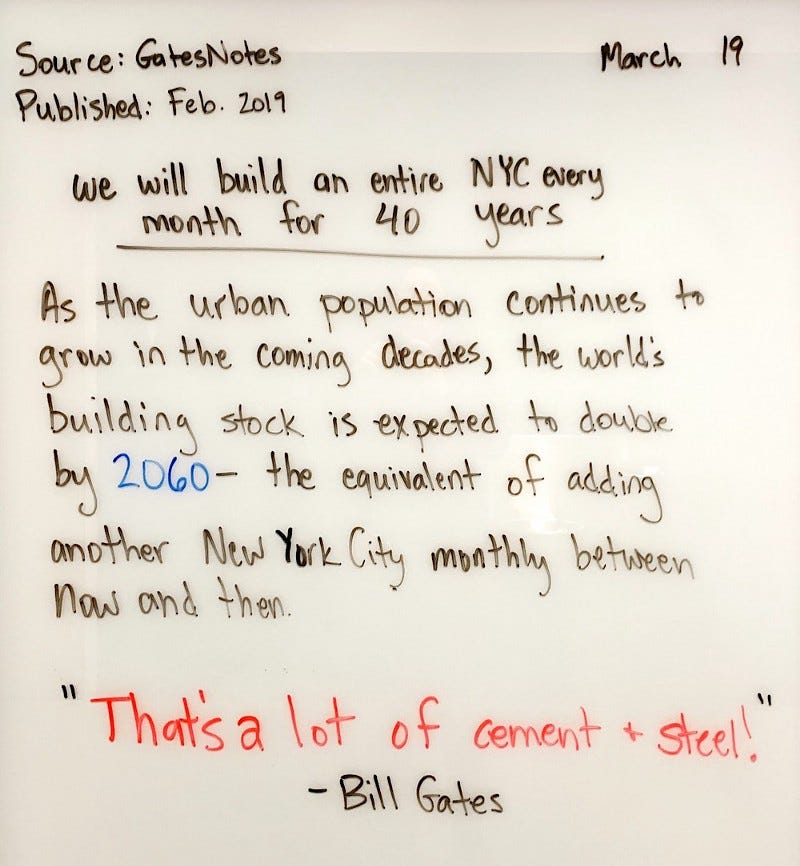 Source: GatesNotes
March 19
Published: Feb. 2019
we will build an entire NYC every
month for 40 years
As the urban population continues to
grow in the coming decades, the world's
building stock is expected to double
by 2060 – the equivalent of adding
another New York City monthly between
now and then.
"That's a lot of cement + steel!"
- Bill Gates